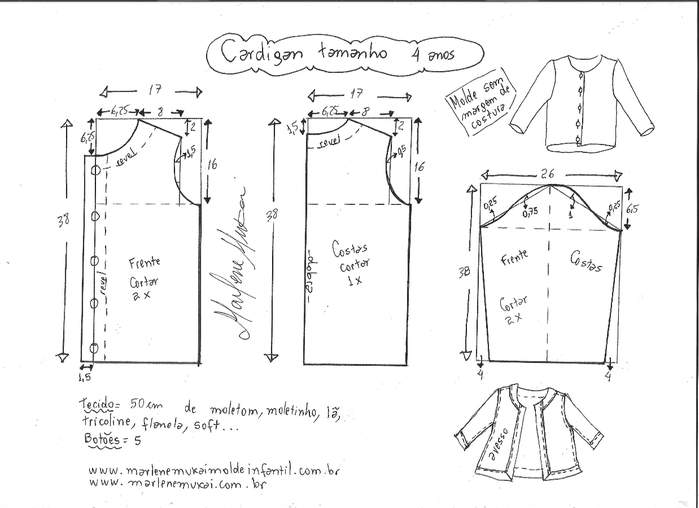 Cardigan tamanho 4 anos
17
6,25
8
2
6,25
1,5
revel
16
38
revel
Frente
Cortar
2x
1,5
Marlene Mukai
17
1,5
6,25
8
2
1,5
revel
16
38
dobra
Costas
cortar
1x
Molde sem
margem de
costura
26
0,25
0,75
1
0,25
6,5
38
Frente
Costas
Cortar
2x
4
4
avesso
Tecido = 50cm de moletom, moletinho, lã,
tricoline, flanela, soft...
Botões = 5
www.marlenemukaimoldeinfantil.com.br
www.marlenemukai.com.br